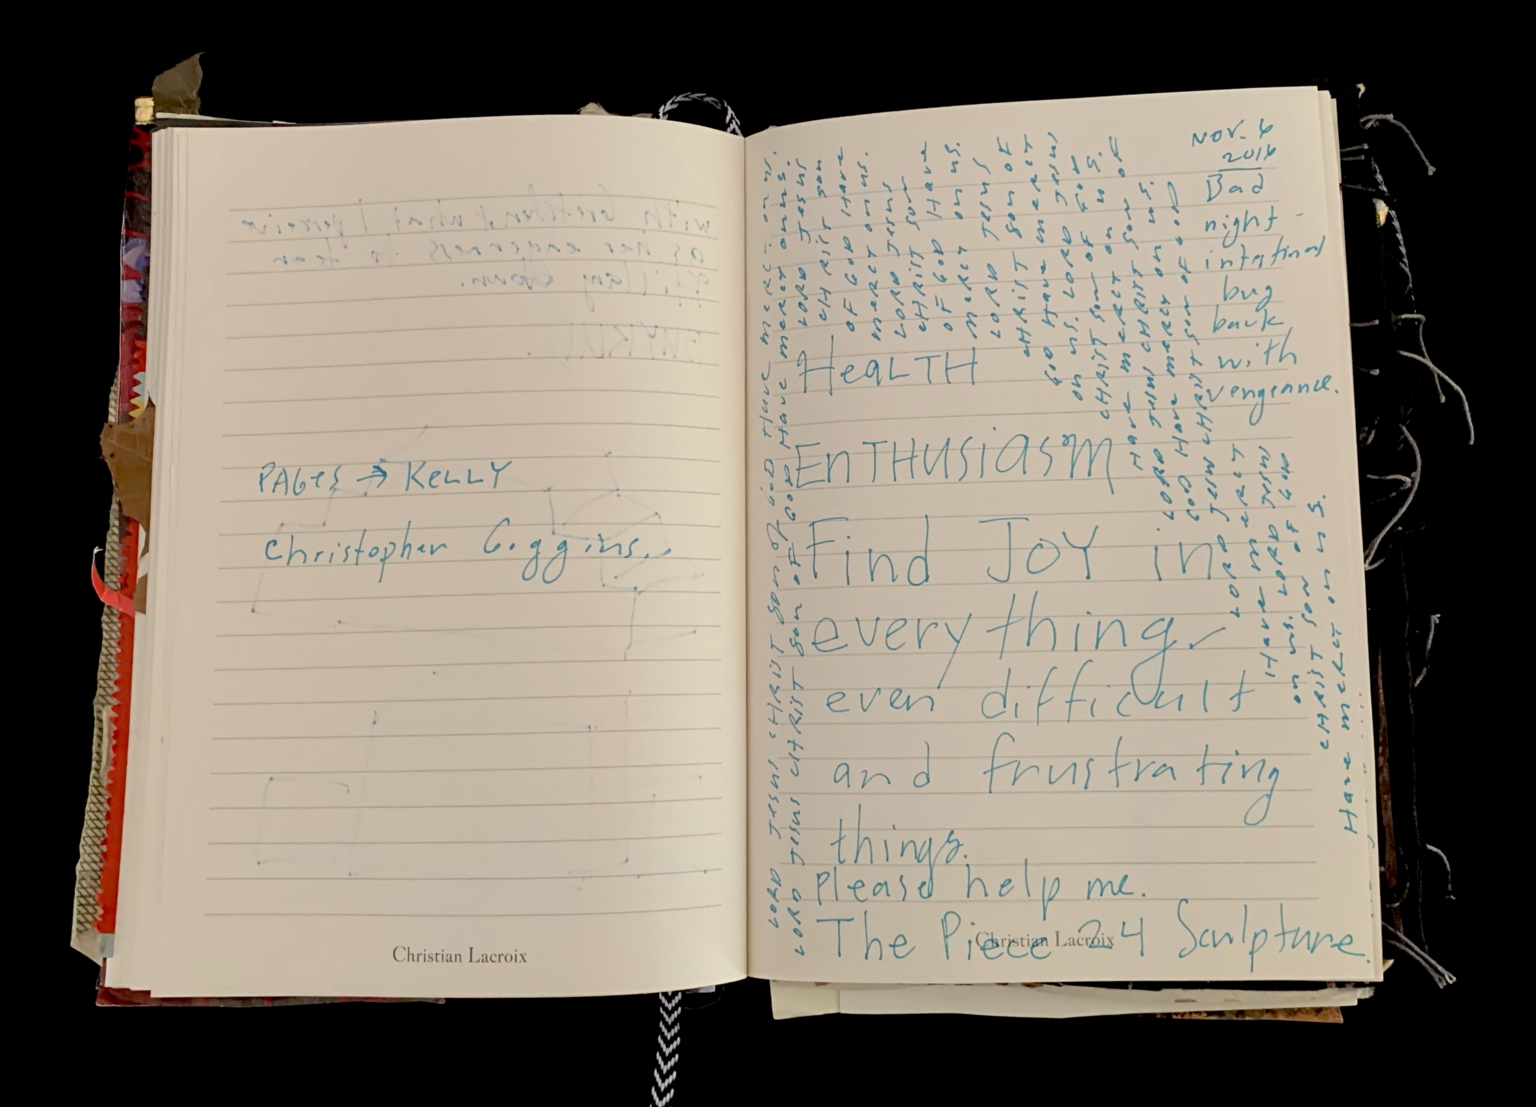 PAGES → KELLY
Christopher Goggins.
Christian Lacroix
Nov. 6
2016
Bad
night -
intestinal
bug
back
with
vengeance.
LORD JESUS CHRIST Son of GOD Have mercy on us.
LORD JESUS CHRIST Son OF GOD Have mercy on us.
LORD JESUS
CHRIST Son
OF GOD Have
mercy on us.
LORD JESUS
CHRIST Son
OF GOD Have
mercy on us.
LORD JESUS
CHRIST Son OF
GOD Have mercy
on us. LORD JESUS
CHRIST Son OF GOD
Have mercy on us.
LORD JESUS CHRIST Son OF
GOD Have mercy on us.
LORD JESUS CHRIST Son OF GOD
Have mercy
on us. LORD JESUS
CHRIST SON OF GOD
Have mercy on us.
HeaLTH
EnTHUSiasm
Find JOY in
everything
even difficult
and frustrating
things.
Please help me.
The Piece 24 Sculpture.
Christian Lacroix